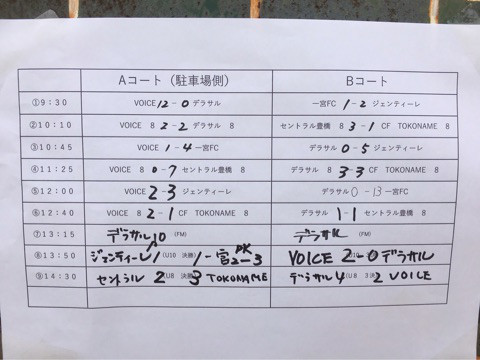 Aコート（駐車場側） Bコート
①9:30 VOICE 12-0 デラサル 一宮FC 1-2 ジェンティーレ
②10:10 VOICE 8 2-2 デラサル 8 セントラル豊橋 8 3-1 CF TOKONAME 8
③10:45 VOICE 1-4 一宮FC デラサル 0-5 ジェンティーレ
④11:25 VOICE 8 0-7 セントラル豊橋 8 デラサル 8 3-3 CF TOKONAME 8
⑤12:00 VOICE 2-3 ジェンティーレ デラサル 0-13 一宮FC
⑥12:40 VOICE 8 2-1 CF TOKONAME 8 デラサル 1-1 セントラル豊橋 8
⑦13:15 デラサル 10 (FM) デラサル (FM)
⑧13:50 ジェンティーレ 1 (U10 決勝) 1 一宮 PK 2-3 VOICE 2-0 デラサル
⑨14:30 セントラル 2 (U8 決勝) 3 TOKONAME デラサル 4 (U8 3決) 2 VOICE